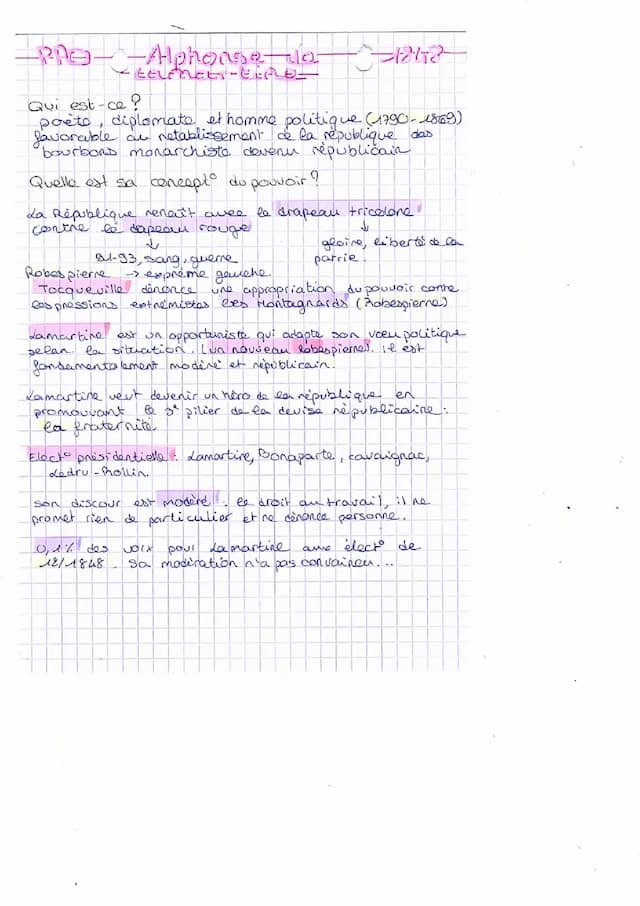 PPO Alphonse de 1848
Lamartine
Qui est-ce ?
poète, diplomate et homme politique (1790-1869)
favorable au retablissement de la république des
bourbons monarchiste devenu républicain
Quelle est sa concept° du pouvoir ?
La République renaît avec le drapeau tricolore
contre le dapeau rouge
91-93, sang, guerre
gloire, liberté de la
patrie.
Robespierre → exprême gauche.
Tocqueville dénonce une appropriation du pouvoir contre
les pressions extrémistes des Montagnards (Robespierre)
Lamartine est un opportuniste qui adapte son voeu politique
selon la situation. (un nouveau Robespierre). il est
fondamentalement modéré et républicain.
Lamartine veut devenir un héro de la république en
promouvant le 3e pilier de la devise républicaine :
la fraternité
Elect° présidentielle : Lamartine, Bonaparte, cavaignac,
Ledru-Rollin.
son discour est modéré : le droit au travail, il ne
promet rien de particulier et ne dénonce personne.
0,1% des voix pour Lamartine aux élect° de
12/1848. Sa modération n'a pas convaincu...